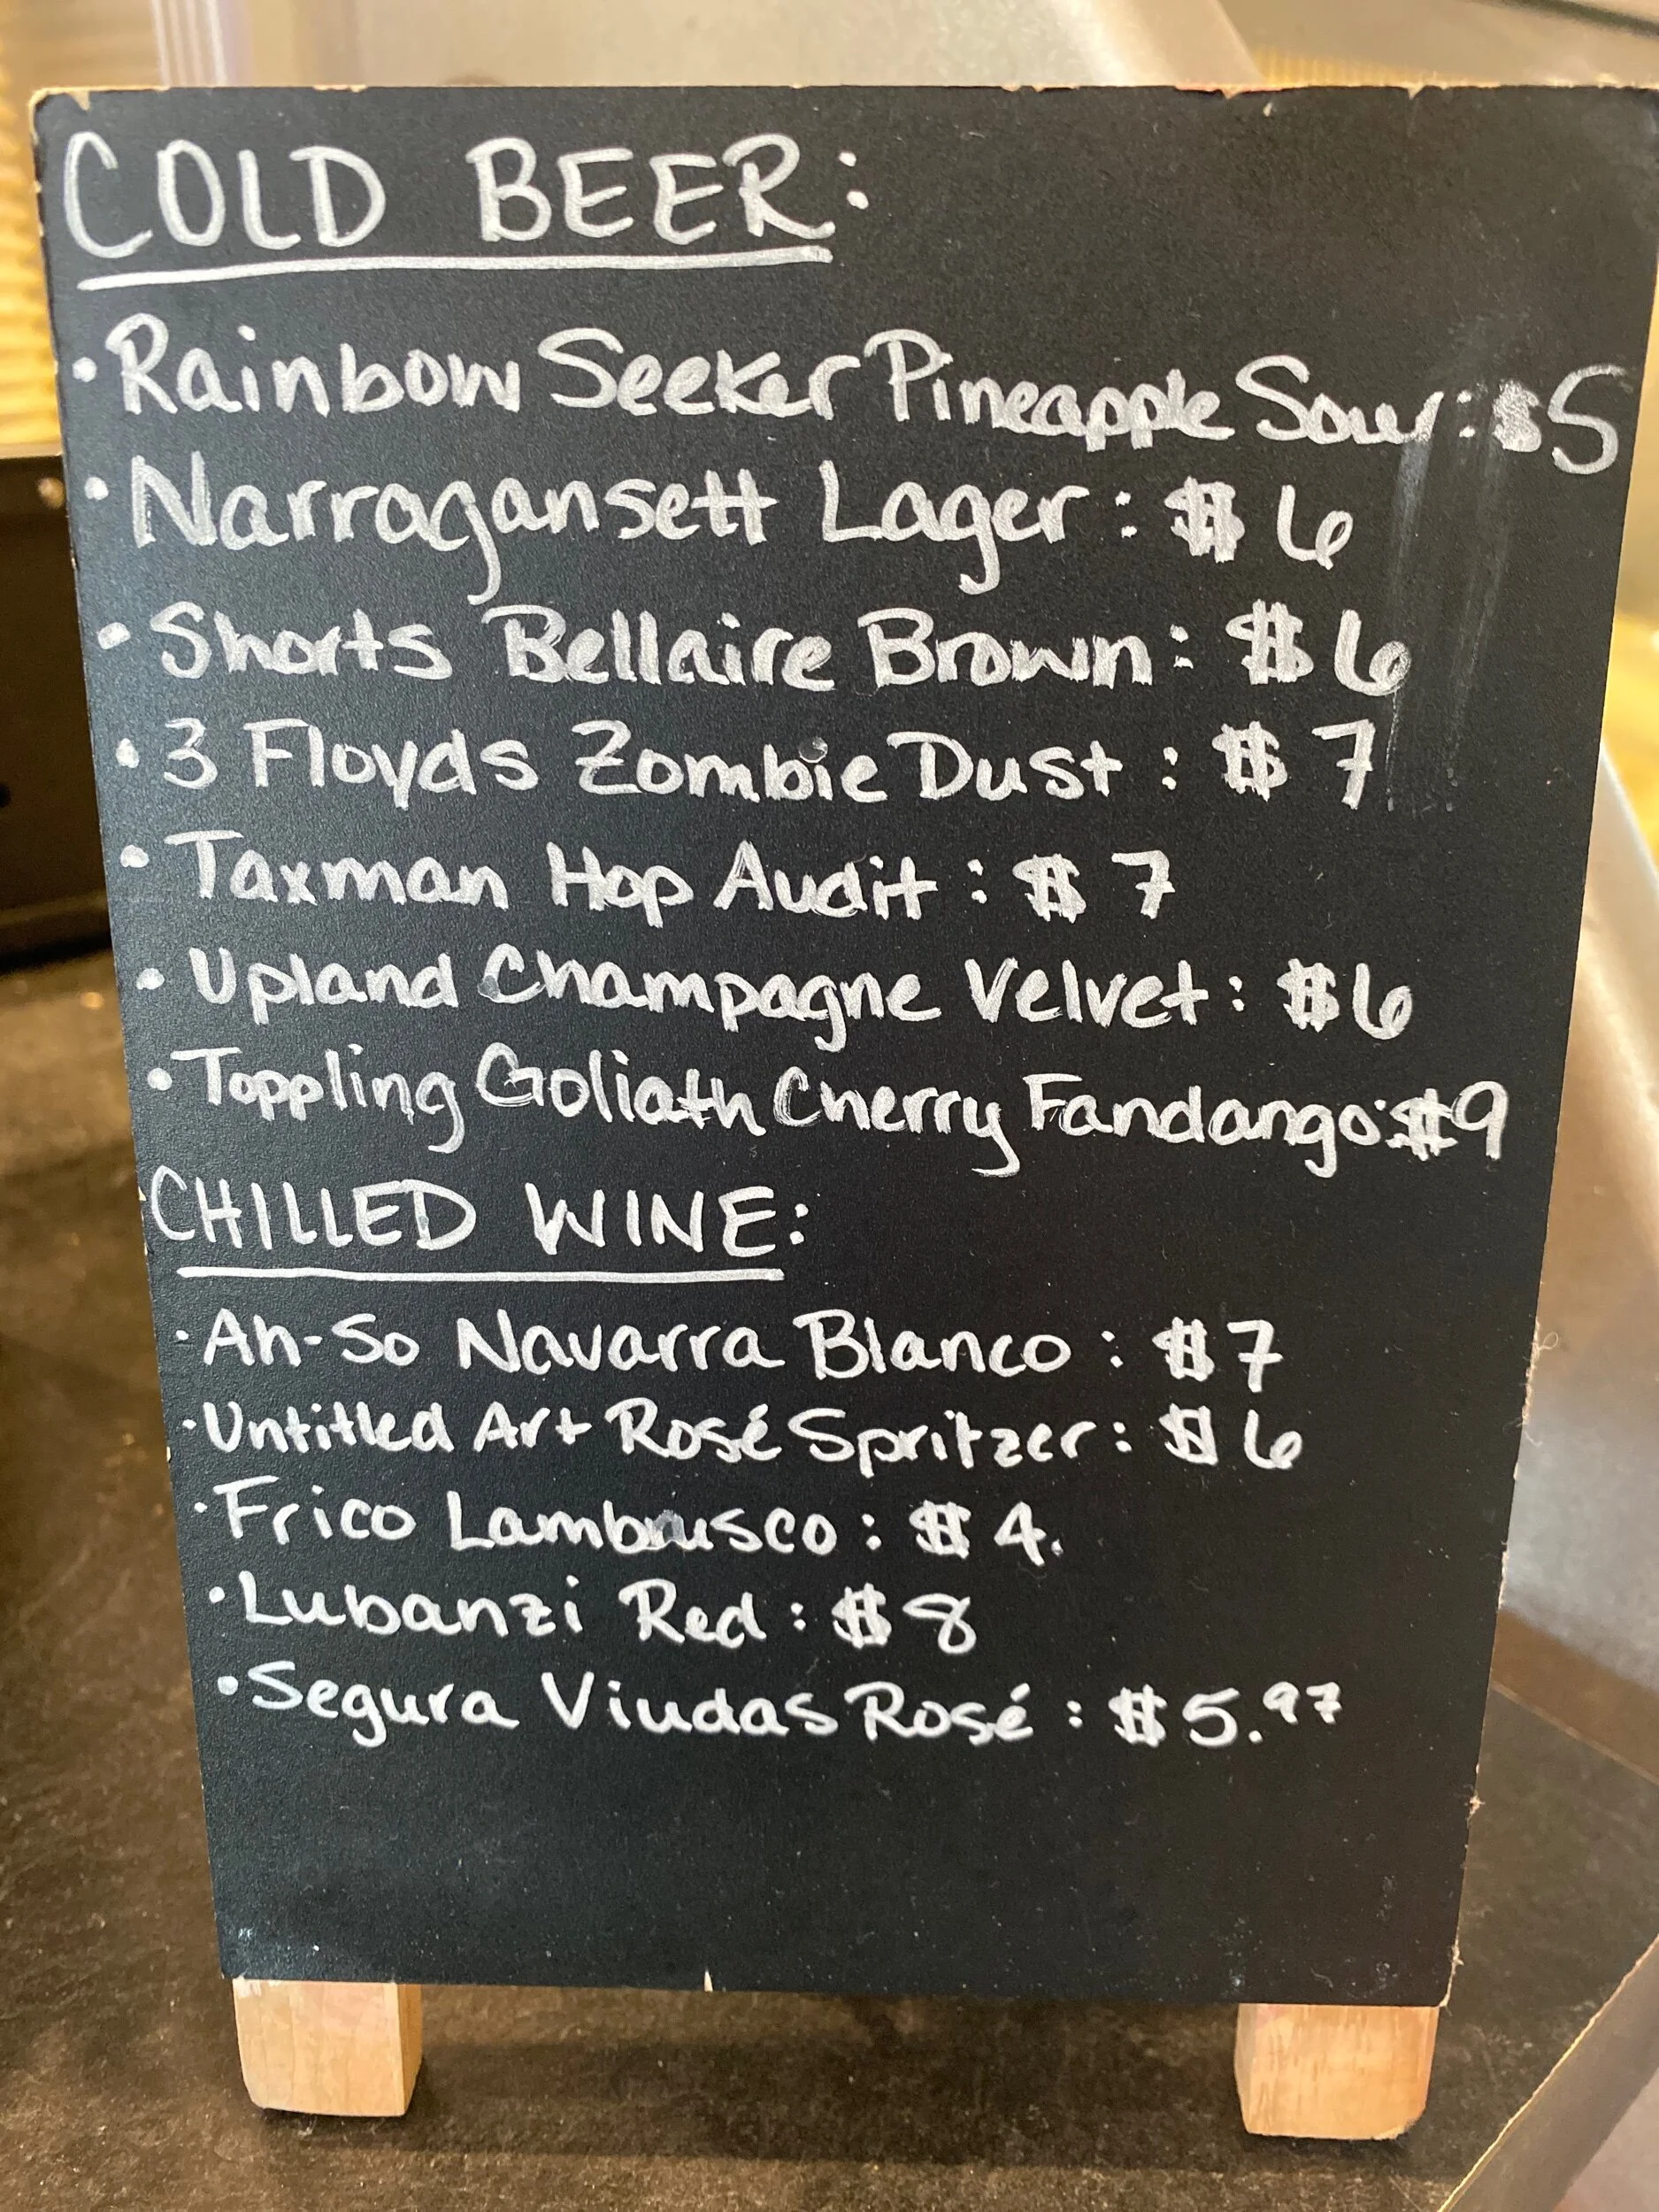 COLD BEER:
• Rainbow Seeker Pineapple Sour: $5
• Narragansett Lager: $6
• Shorts Bellaire Brown: $6
• 3 Floyds Zombie Dust: $7
• Taxman Hop Audit: $7
• Upland Champagne Velvet: $6
• Toppling Goliath Cherry Fandango: $9
CHILLED WINE:
• Ah-So Navarra Blanco: $7
• Untitled Art Rosé Spritzer: $6
• Frico Lambrusco: $4.
• Lubanzi Red: $8
• Segura Viudas Rosé: $5.97